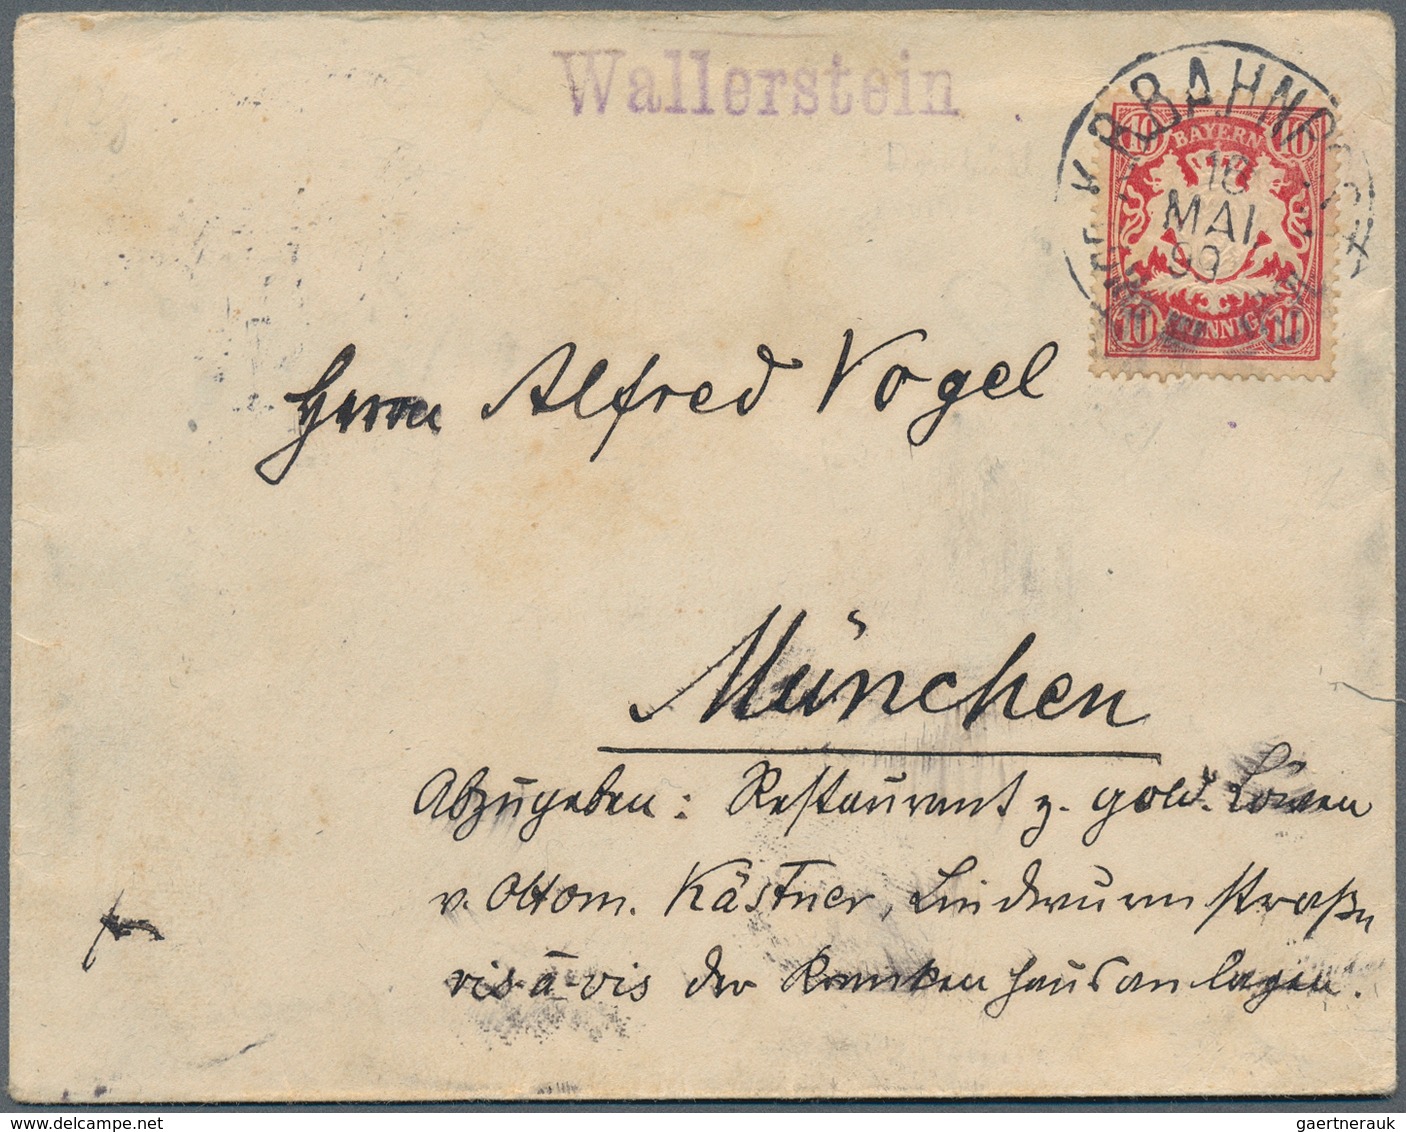 Wallerstein
K.B.BAHNPOST
10 BAYERN 10
MAI
99
10 PFENNIG 10
Herrn Alfred Vogel
München
Abzugeben: Restaurant z. gold. Löwen
v. Ottom. Kästner, Lindwurmstraße
vis-à-vis der Krankenhausanlagen.
gaertnerauk
www.delcampe.net